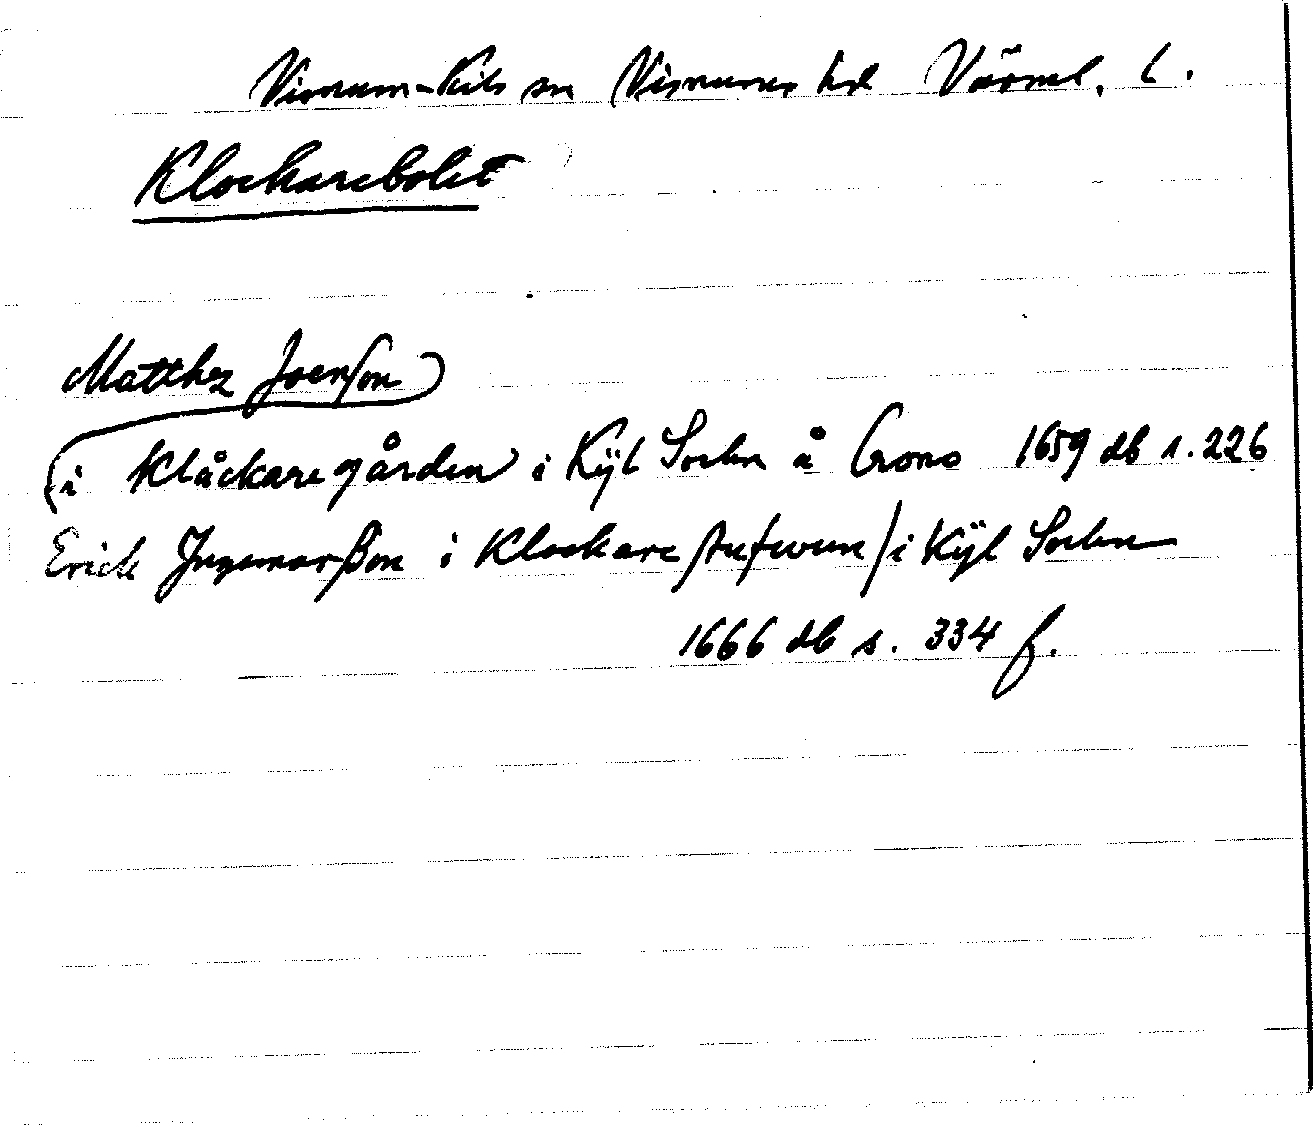 Visnum-Kils sn Visnums hd Värml. l.
Klockarebolet
Matthez Joensson
i Klåckaregården i Kÿl Sochn å Crono 1659 db s. 226
Erick Ingemarßon i Klockare stufwun / i Kÿl Sochn
1666 db s. 334 f.